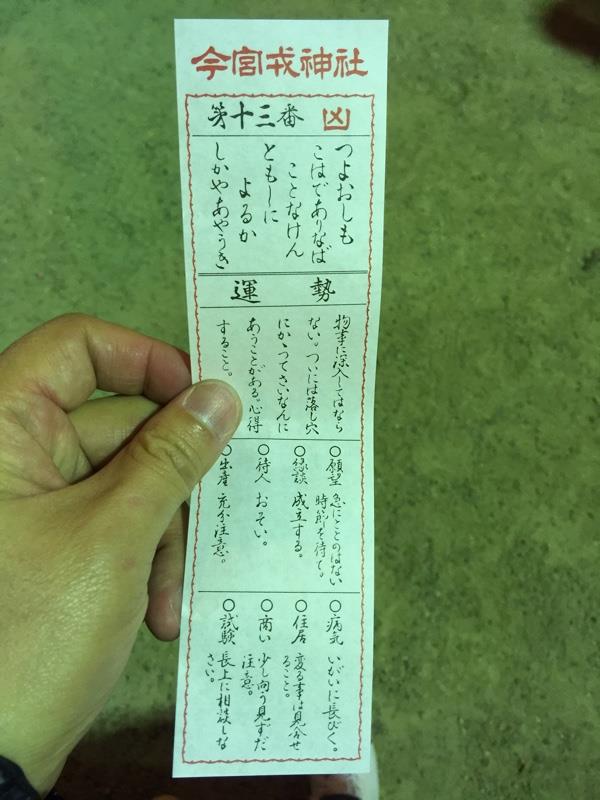 今宮戎神社
第十三番 凶
つよおしも
こはでありなば
ことなけん
ともしに
よるか
しかやあやうき
運勢
物事に深入してはなら
ない。ついには落し穴
にかゝってさいなんに
あうことがある。心得
すること。
○願望 急にととのはない
時節を待て。
○縁談 成立する。
○待人 おそい。
○出産 充分注意。
○病気 いがいに長びく。
○住居 変る事は見合せ
ること。
○商い 少し向う見ずだ
注意。
○試験 長上に相談しな
さい。